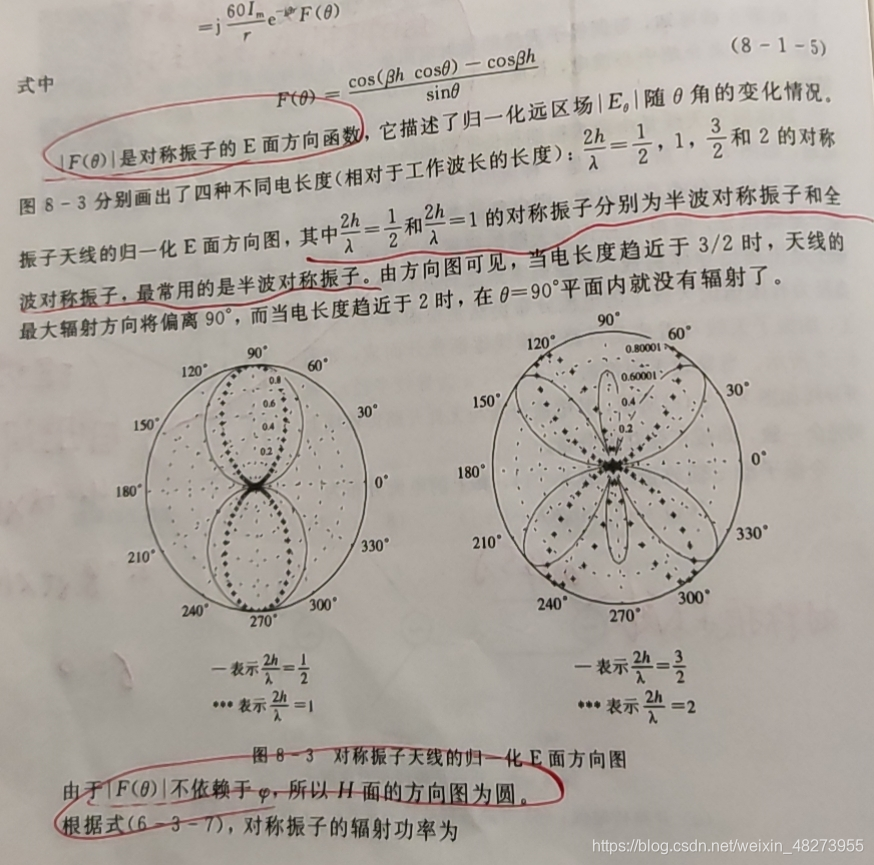 =j 60Iₘ/r e⁻ʲᵝʳ F(θ)
(8-1-5)
式中
F(θ) = (cos(βh cosθ) - cosβh)/sinθ
|F(θ)|是对称振子的 E 面方向函数,它描述了归一化远区场|E_θ|随 θ 角的变化情况。
图 8-3 分别画出了四种不同电长度(相对于工作波长的长度):2h/λ=1/2,1,3/2和 2 的对称
振子天线的归一化 E 面方向图,其中2h/λ=1/2和2h/λ=1 的对称振子分别为半波对称振子和全
波对称振子,最常用的是半波对称振子。由方向图可见,当电长度趋近于 3/2 时,天线的
最大辐射方向将偏离 90°,而当电长度趋近于 2 时,在 θ=90°平面内就没有辐射了。
90°
120° 60°
0.8
0.6
150° 30°
0.4
0.2
180° 0°
210° 330°
240° 300°
270°
—表示2h/λ=1/2
***表示2h/λ=1
90°
120° 60°
0.80001
0.60001
150° 30°
0.4
0.2
180° 0°
210° 330°
240° 300°
270°
—表示2h/λ=3/2
***表示2h/λ=2
图 8-3 对称振子天线的归一化 E 面方向图
由于|F(θ)|不依赖于 φ,所以 H 面的方向图为圆。
根据式(6-3-7),对称振子的辐射功率为
https://blog.csdn.net/weixin_48273955